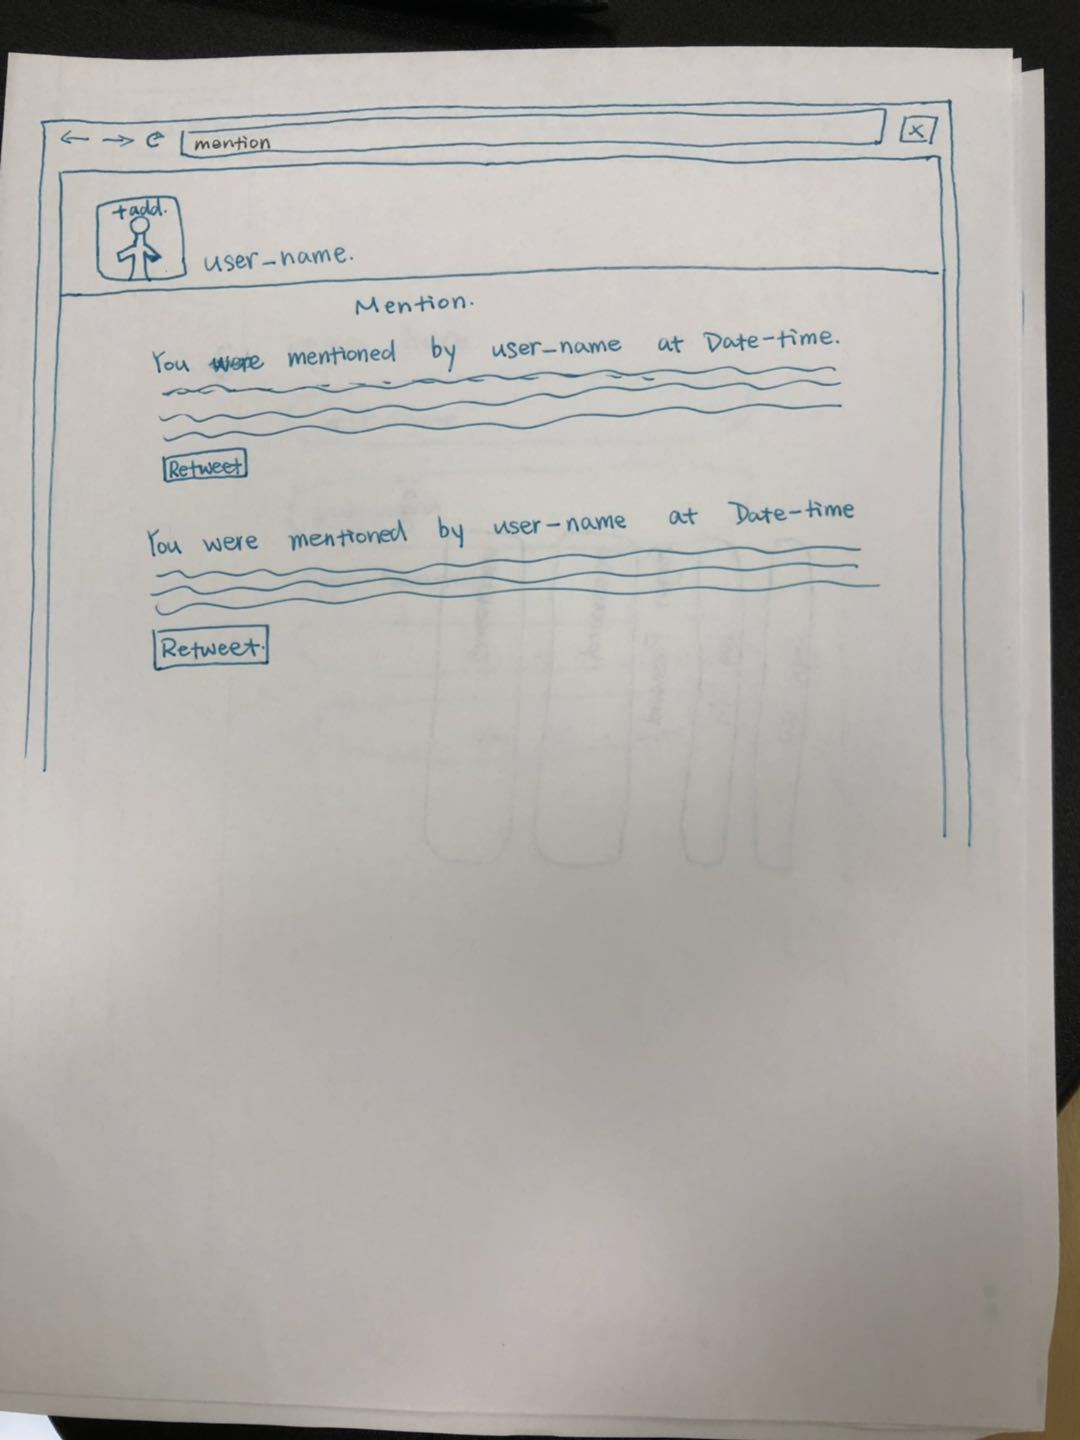 mention
+add.
user_name.
Mention.
You were mentioned by user_name at Date-time.
Retweet
You were mentioned by user-name at Date-time
Retweet.